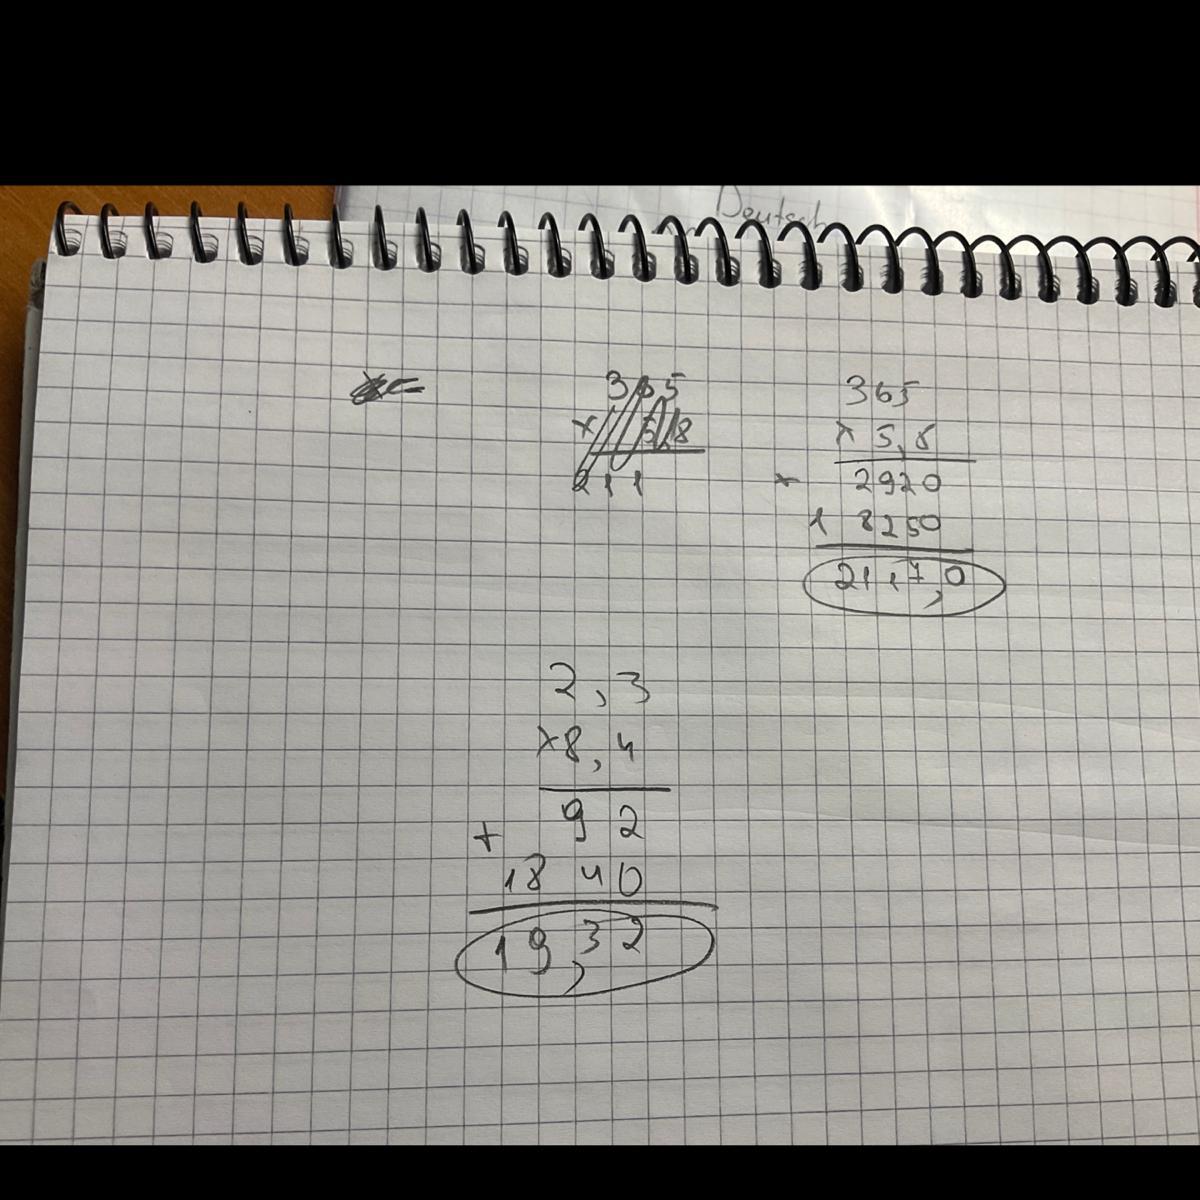 Deutsch
365
x 5,8
211
365
x 5,8
+ 2920
18250
2117,0
2,3
x8,4
+ 92
1840
19,32